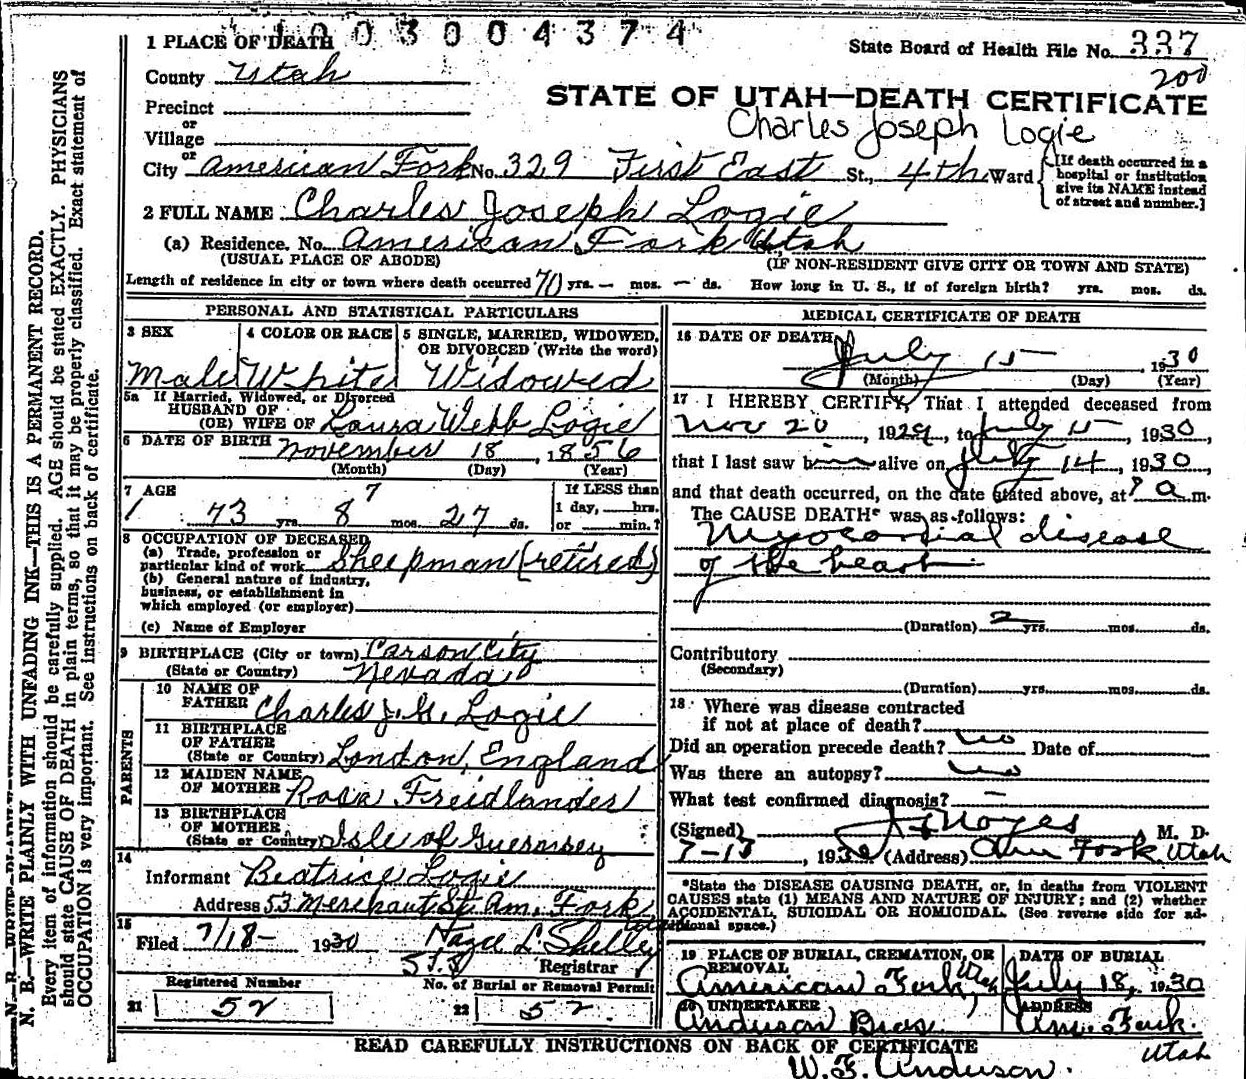 1003004374
State Board of Health File No. 337
200
STATE OF UTAH—DEATH CERTIFICATE
Charles Joseph Logie
1 PLACE OF DEATH
County Utah
Precinct
or
Village
or
City American Fork No. 329 First East St., 4th Ward
[If death occurred in a hospital or institution give its NAME instead of street and number.]
2 FULL NAME Charles Joseph Logie
(a) Residence. No. American Fork Utah
(USUAL PLACE OF ABODE) (IF NON-RESIDENT GIVE CITY OR TOWN AND STATE)
Length of residence in city or town where death occurred 70 yrs. — mos. — ds. How long in U. S., if of foreign birth? yrs. mos. ds.
PERSONAL AND STATISTICAL PARTICULARS
3 SEX 4 COLOR OR RACE 5 SINGLE, MARRIED, WIDOWED, OR DIVORCED (Write the word)
Male White Widowed
5a If Married, Widowed, or Divorced
HUSBAND OF
(OR) WIFE OF Laura Webb Logie
6 DATE OF BIRTH November 18, 1856
(Month) (Day) (Year)
7 AGE 7 If LESS than
1 day, hrs.
73 yrs. 8 mos. 27 ds. or min.?
8 OCCUPATION OF DECEASED
(a) Trade, profession or
particular kind of work Sheepman (retired)
(b) General nature of industry,
business, or establishment in
which employed (or employer)
(c) Name of Employer
9 BIRTHPLACE (City or town) Carson City
(State or Country) Nevada
PARENTS
10 NAME OF
FATHER Charles J. G. Logie
11 BIRTHPLACE
OF FATHER
(State or Country) London, England
12 MAIDEN NAME
OF MOTHER Rosa Freidlander
13 BIRTHPLACE
OF MOTHER
(State or Country) Isle of Guernsey
14
Informant Beatrice Logie
Address 53 Merchant St. Am. Fork
15
Filed 7/18- 1930 Hazel L. Shelley
Registrar
Registered Number No. of Burial or Removal Permit
21 52 22 52
MEDICAL CERTIFICATE OF DEATH
16 DATE OF DEATH
July 15 1930
(Month) (Day) (Year)
17 I HEREBY CERTIFY, That I attended deceased from
Nov 20, 1929, to July 15, 1930,
that I last saw him alive on July 14, 1930
and that death occurred, on the date stated above, at a.m.
The CAUSE DEATH* was as follows:
Myocardial disease
of the heart
(Duration) 2 yrs. mos. ds.
Contributory
(Secondary)
(Duration) yrs. mos. ds.
18 Where was disease contracted
if not at place of death?
Did an operation precede death? no Date of
Was there an autopsy? no
What test confirmed diagnosis? —
(Signed) Noyes, M. D.
1930 (Address) Am Fork Utah
*State the DISEASE CAUSING DEATH, or, in deaths from VIOLENT
CAUSES state (1) MEANS AND NATURE OF INJURY; and (2) whether
ACCIDENTAL, SUICIDAL OR HOMICIDAL. (See reverse side for additional space.)
19 PLACE OF BURIAL, CREMATION, OR REMOVAL DATE OF BURIAL
American Fork July 18, 1930
20 UNDERTAKER ADDRESS
Anderson Bros. Am. Fork.
Utah
READ CAREFULLY INSTRUCTIONS ON BACK OF CERTIFICATE
W. F. Anderson.
N. B.—WRITE PLAINLY WITH UNFADING INK—THIS IS A PERMANENT RECORD.
Every item of information should be carefully supplied. AGE should be stated EXACTLY. PHYSICIANS
should state CAUSE OF DEATH in plain terms, so that it may be properly classified. Exact statement of
OCCUPATION is very important. See instructions on back of certificate.